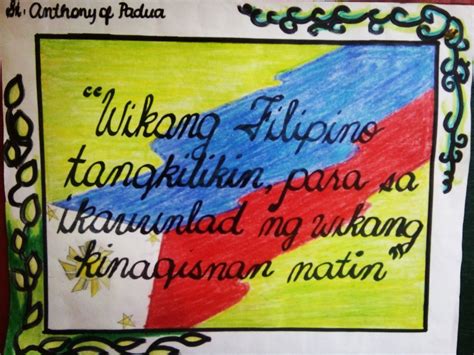 St. Anthony of Padua
"Wikang Filipino
tangkilikin, para sa
ikauunlad ng wikang
kinagisnan natin"